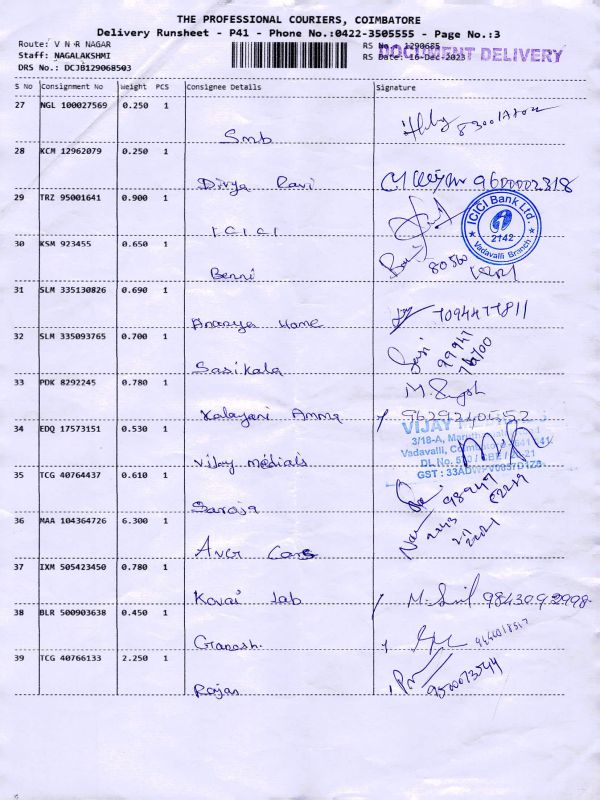 THE PROFESSIONAL COURIERS, COIMBATORE
Delivery Runsheet - P41 - Phone No.:0422-3505555 - Page No.:3
Route: V N R NAGAR
Staff: NAGALAKSHMI
DRS No.: DCJB129068503
RS No.: 1290685
RS Date: 16-Dec-2023
DOCUMENT DELIVERY
S No Consignment No Weight PCS Consignee Details Signature
27 NGL 100027569 0.250 1
Smb
28 KCM 12962079 0.250 1
Divya Ravi 9600002318
29 TRZ 95001641 0.900 1
I C I C I
ICICI Bank Ltd.
2142
Vadavalli Branch
30 KSM 923455 0.650 1
Benni 80560
31 SLM 335130826 0.690 1
Ananya Home 7094477811
32 SLM 335093765 0.700 1
Sasikala Sasi 99947
33 PDK 8292245 0.780 1
Kalayani Amma 9629240552
34 EDQ 17573151 0.530 1
Vijay medials
VIJAY
3/18-A,
Vadavalli,
DL No.
GST : 33ADWPV0857D1Z8
35 TCG 40764437 0.610 1
Saroja 98947
36 MAA 104364726 6.300 1
AVGR Cars
37 IXM 505423450 0.780 1
Kovai lab 9843092998
38 BLR 500903638 0.450 1
Ganesh.
39 TCG 40766133 2.250 1
Rajan 9500073544